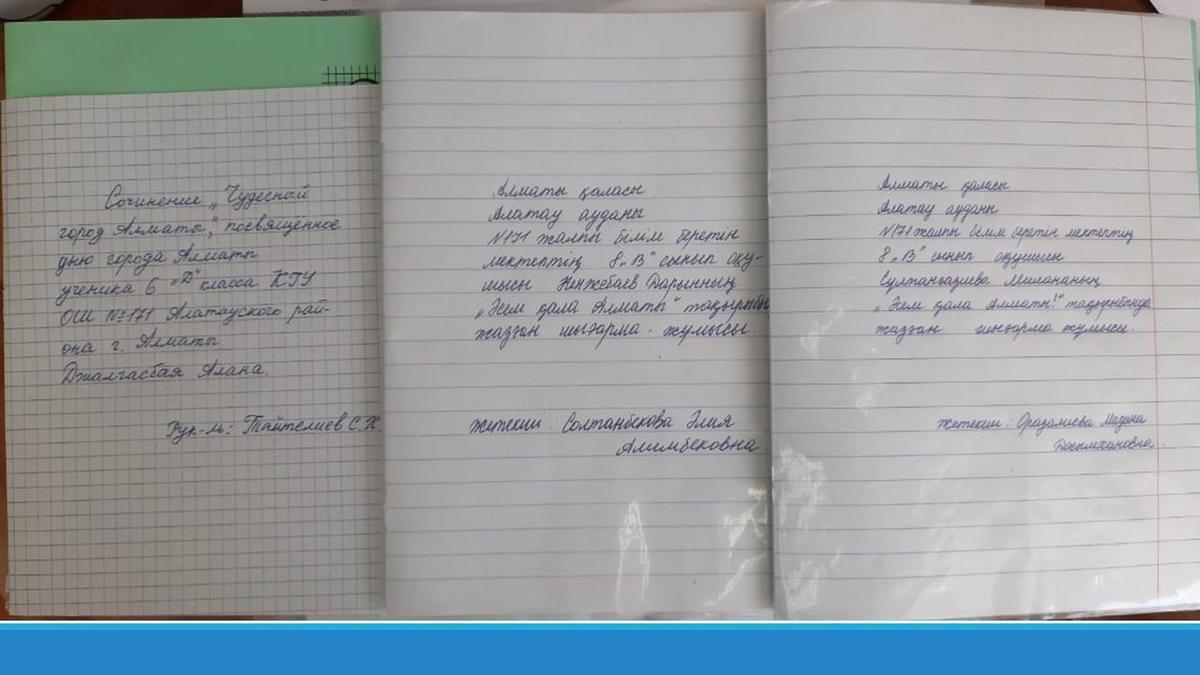 Сочинение „Чудесный
город Алматы", посвящённое
дню города Алматы
ученика 6 "Д" класса КГУ
ОШ №171 Алатауского рай-
она г. Алматы
Джалгасбая Алана.
Рук-ль: Тайтелиев С.Х.
Алматы қаласы
Алатау ауданы
N171 жалпы білім беретін
мектептің 8„В" сынып оқу-
мысы Кенжебаев Дарынның
„Әсем қала Алматы" тақырыбы
жазған шығарма - жұмысы.
Жетекші: Солтанбекова Әлия
Алимбековна
Алматы қаласы
Алатау ауданы
N171 жалпы білім беретін мектептің
8„В" сынып оқушысы
Султангазиева Миләнаның
„Әсем қала Алматы!" тақырыбында
жазған шығарма жұмысы.
Жетекші: Оразалиева Мадина
Досымхановна.